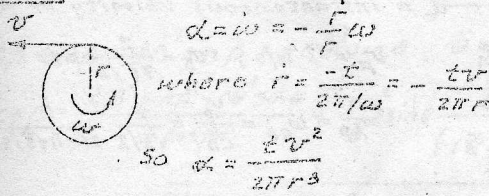 v
α = ω̇ = - ṙ/r ω
r
where ṙ = -t/(2π/ω) = - tv/(2πr)
ωr
So α = tv²/(2πr3)